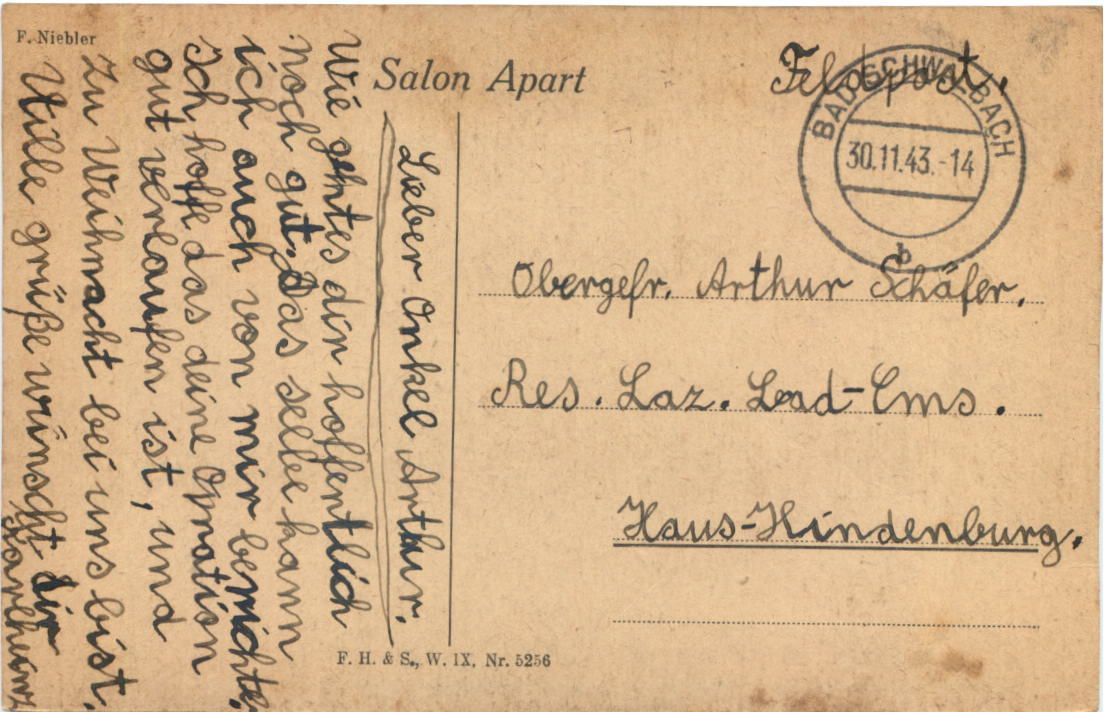 F. Niebler
Salon Apart
Feldpost.
BAD SCHWALBACH
30.11.43.-14
b
Lieber Onkel Arthur.
Wie gehtes dir hoffentlich
noch gut. Das selbe kann
ich auch von mir berichte.
Ich hoffe das deine Opration
gut verlaufen ist, und
Zu Weihnacht bei uns bist.
Ville grüße wünscht dir
Karlheinz
Obergefr. Arthur Schäfer.
Res. Laz. Bad-Ems.
Haus-Hindenburg.
F. H. & S., W. IX, Nr. 5256